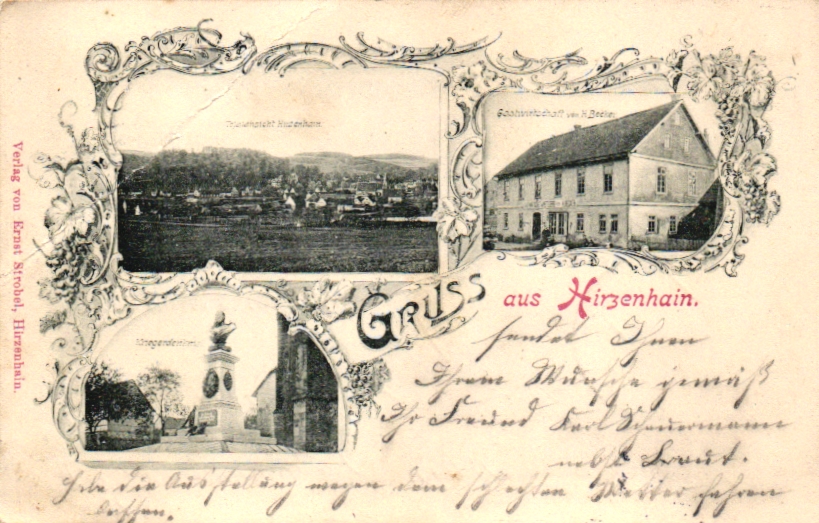 Totalansicht Hirzenhain.
Gastwirtschaft von H. Becker
Kriegerdenkmal
Verlag von Ernst Strobel, Hirzenhain.
GRUSS aus Hirzenhain.
sendet Ihnen
Ihrem Wunsche gemäß
Ihr Freund Karl Scheuermann
nebst Braut.
Habe die Ausstellung wegen dem schlechten Wetter fahren
lassen.